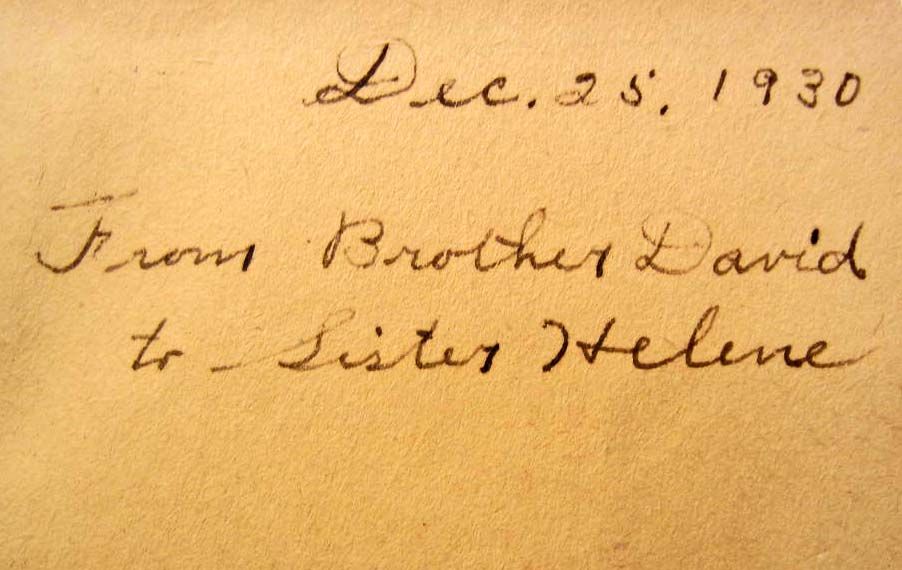 Dec. 25, 1930
From Brother David
to Sister Helene